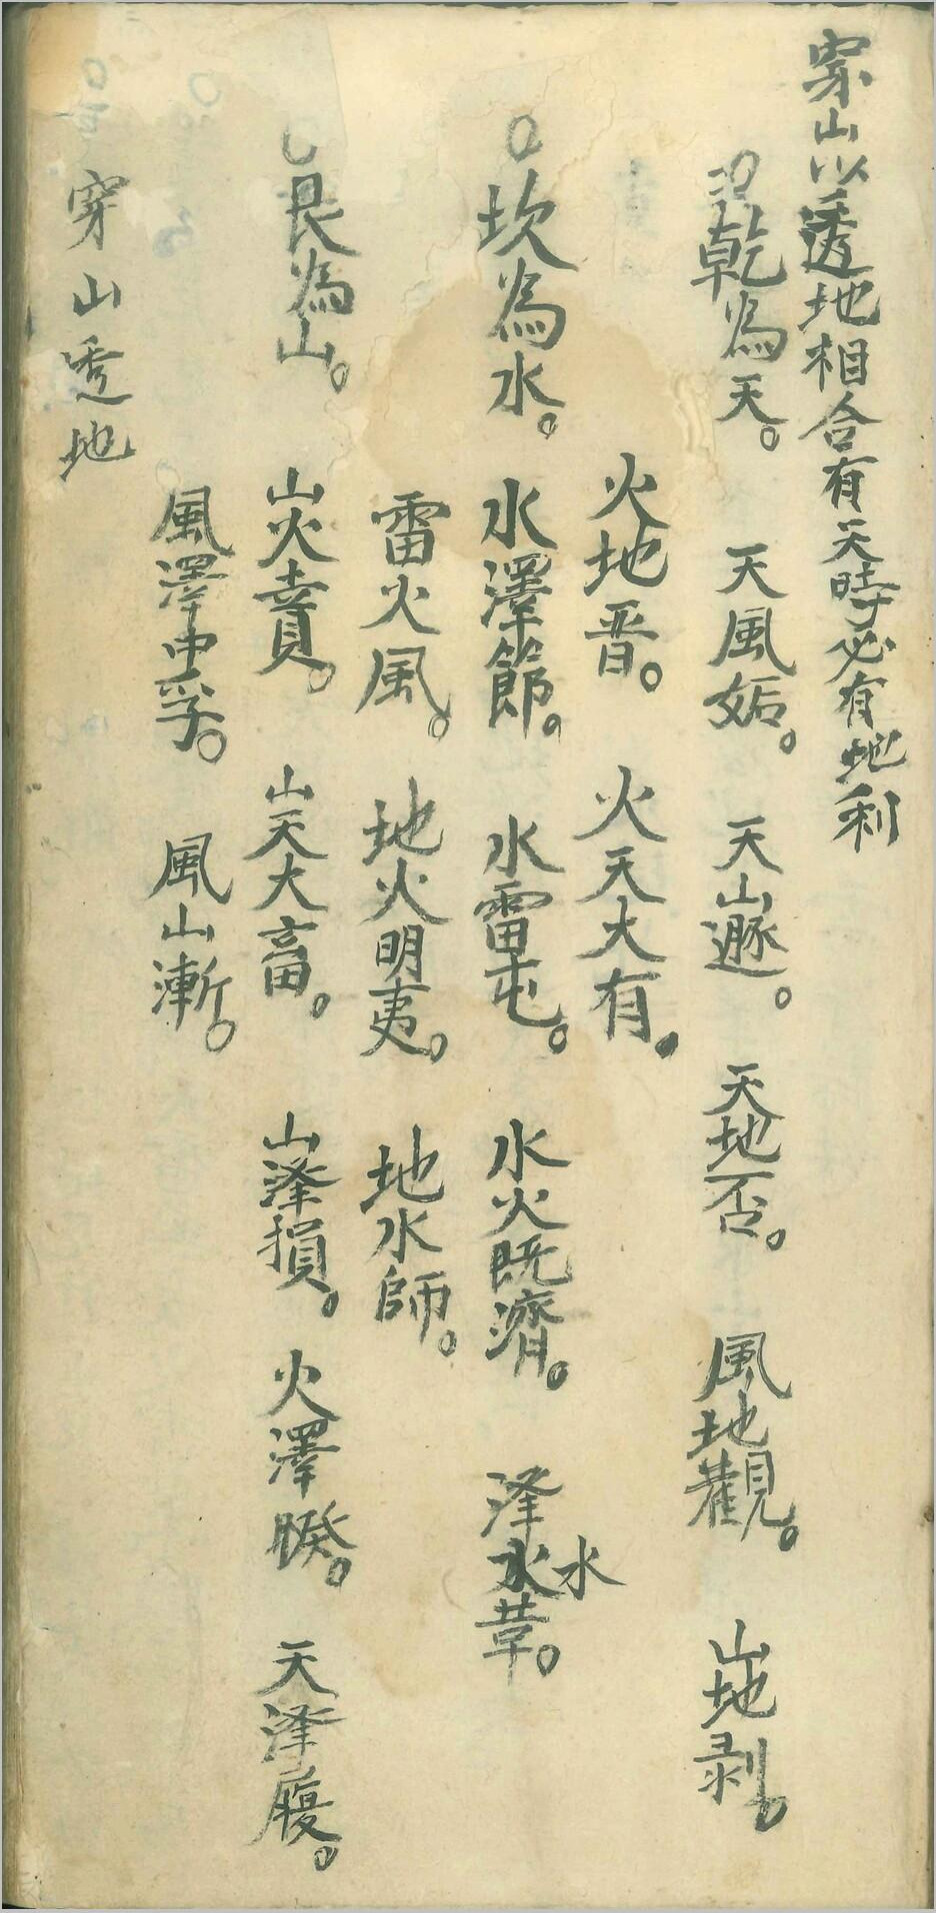 穿山以透地相合有天時必有地利
乾為天。天風姤。天山遯。天地否。風地觀。山地剥。
火地晋。火天大有。
坎為水。水澤節。水雷屯。水火既濟。泽水革。水
雷火風。地火明夷。地水師。
艮為山。山火賁。山天大畜。山泽損。火澤睽。天泽履。
風澤中孚。風山漸。
穿山透地